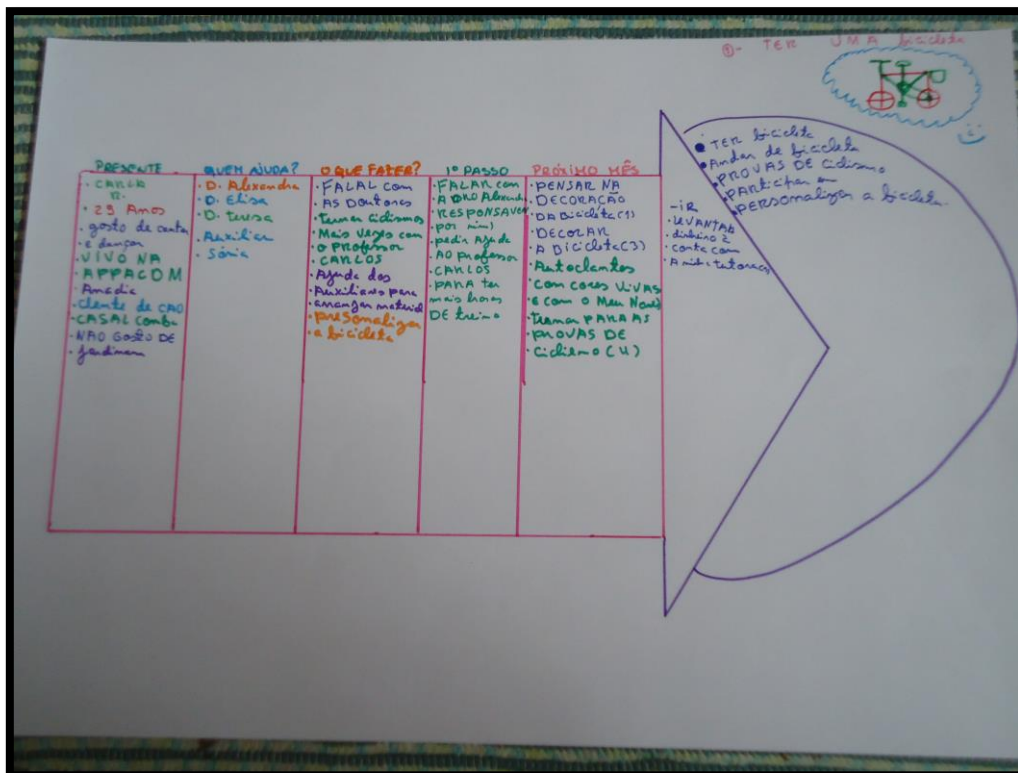 ①- TER UMA bicicleta
PRESENTE
· CARLA
R.
· 29 Anos
· gosto de canta
· e dançar
· VIVO NA
· APPACDM
Anadia
· cliente de CAO
· CASAL Comba
· NÃO GOSTO DE
· Jardinar
QUEM AJUDA?
· D. Alexandra
· D. Elisa
· D. teresa
· Auxiliar
· Sónia
O QUE FAZER?
· FALAL com
· AS Doutoras
· treinar ciclismos
· Mais Vezes com
· o PROFESSOR
· CARLOS
· Ajuda dos
· Auxiliares para
· arranjar material
· presonalizar
· a bicicleta
1º PASSO
· FALAR com
· A DRA Alexandra
· RESPONSAVEL
por mim)
· pedir Ajuda
· AO professor
· CARLOS
· PARA ter
mais horas
DE treino
PRÓXIMO MÊS
· PENSAR NA
· DECORAÇÃO
· DA Bicicleta (1)
· DECORAR
· A Bicicleta (3)
· Autoclantes
· com cores VIVAS
· e com o Meu Nome
· treinar PARA AS
· PROVAS DE
· Ciclismo (4)
- iR
· LEVANTAR
· dinheiro à
· conta com
· A minha tutora (2)
· TER bicicleta
· Andar de bicicleta
· PROVAS DE Ciclismo
· PARTICIPAR em
· PERSONALIZAR a bicicleta.